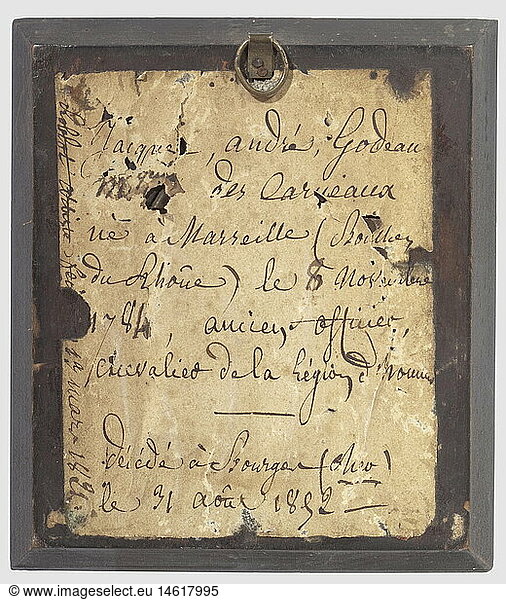 Jacques, andré, Godeau
des Carneaux
né à Marseille (Bouches
du Rhône) le 8 Novembre
1784, ancien officier,
chevalier de la Légion d'honneur
décédé à Bourges (cher)
le 31 août 1852 —
12 mars
www.imageselect.eu 14617995